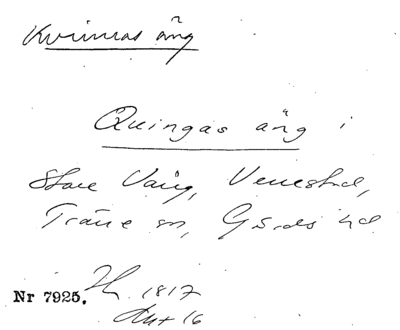 Kvinnas äng
Quingas äng i
Store Vång, Venestad,
Träne sn, Gärds hd
Nr 7925. 1817
16